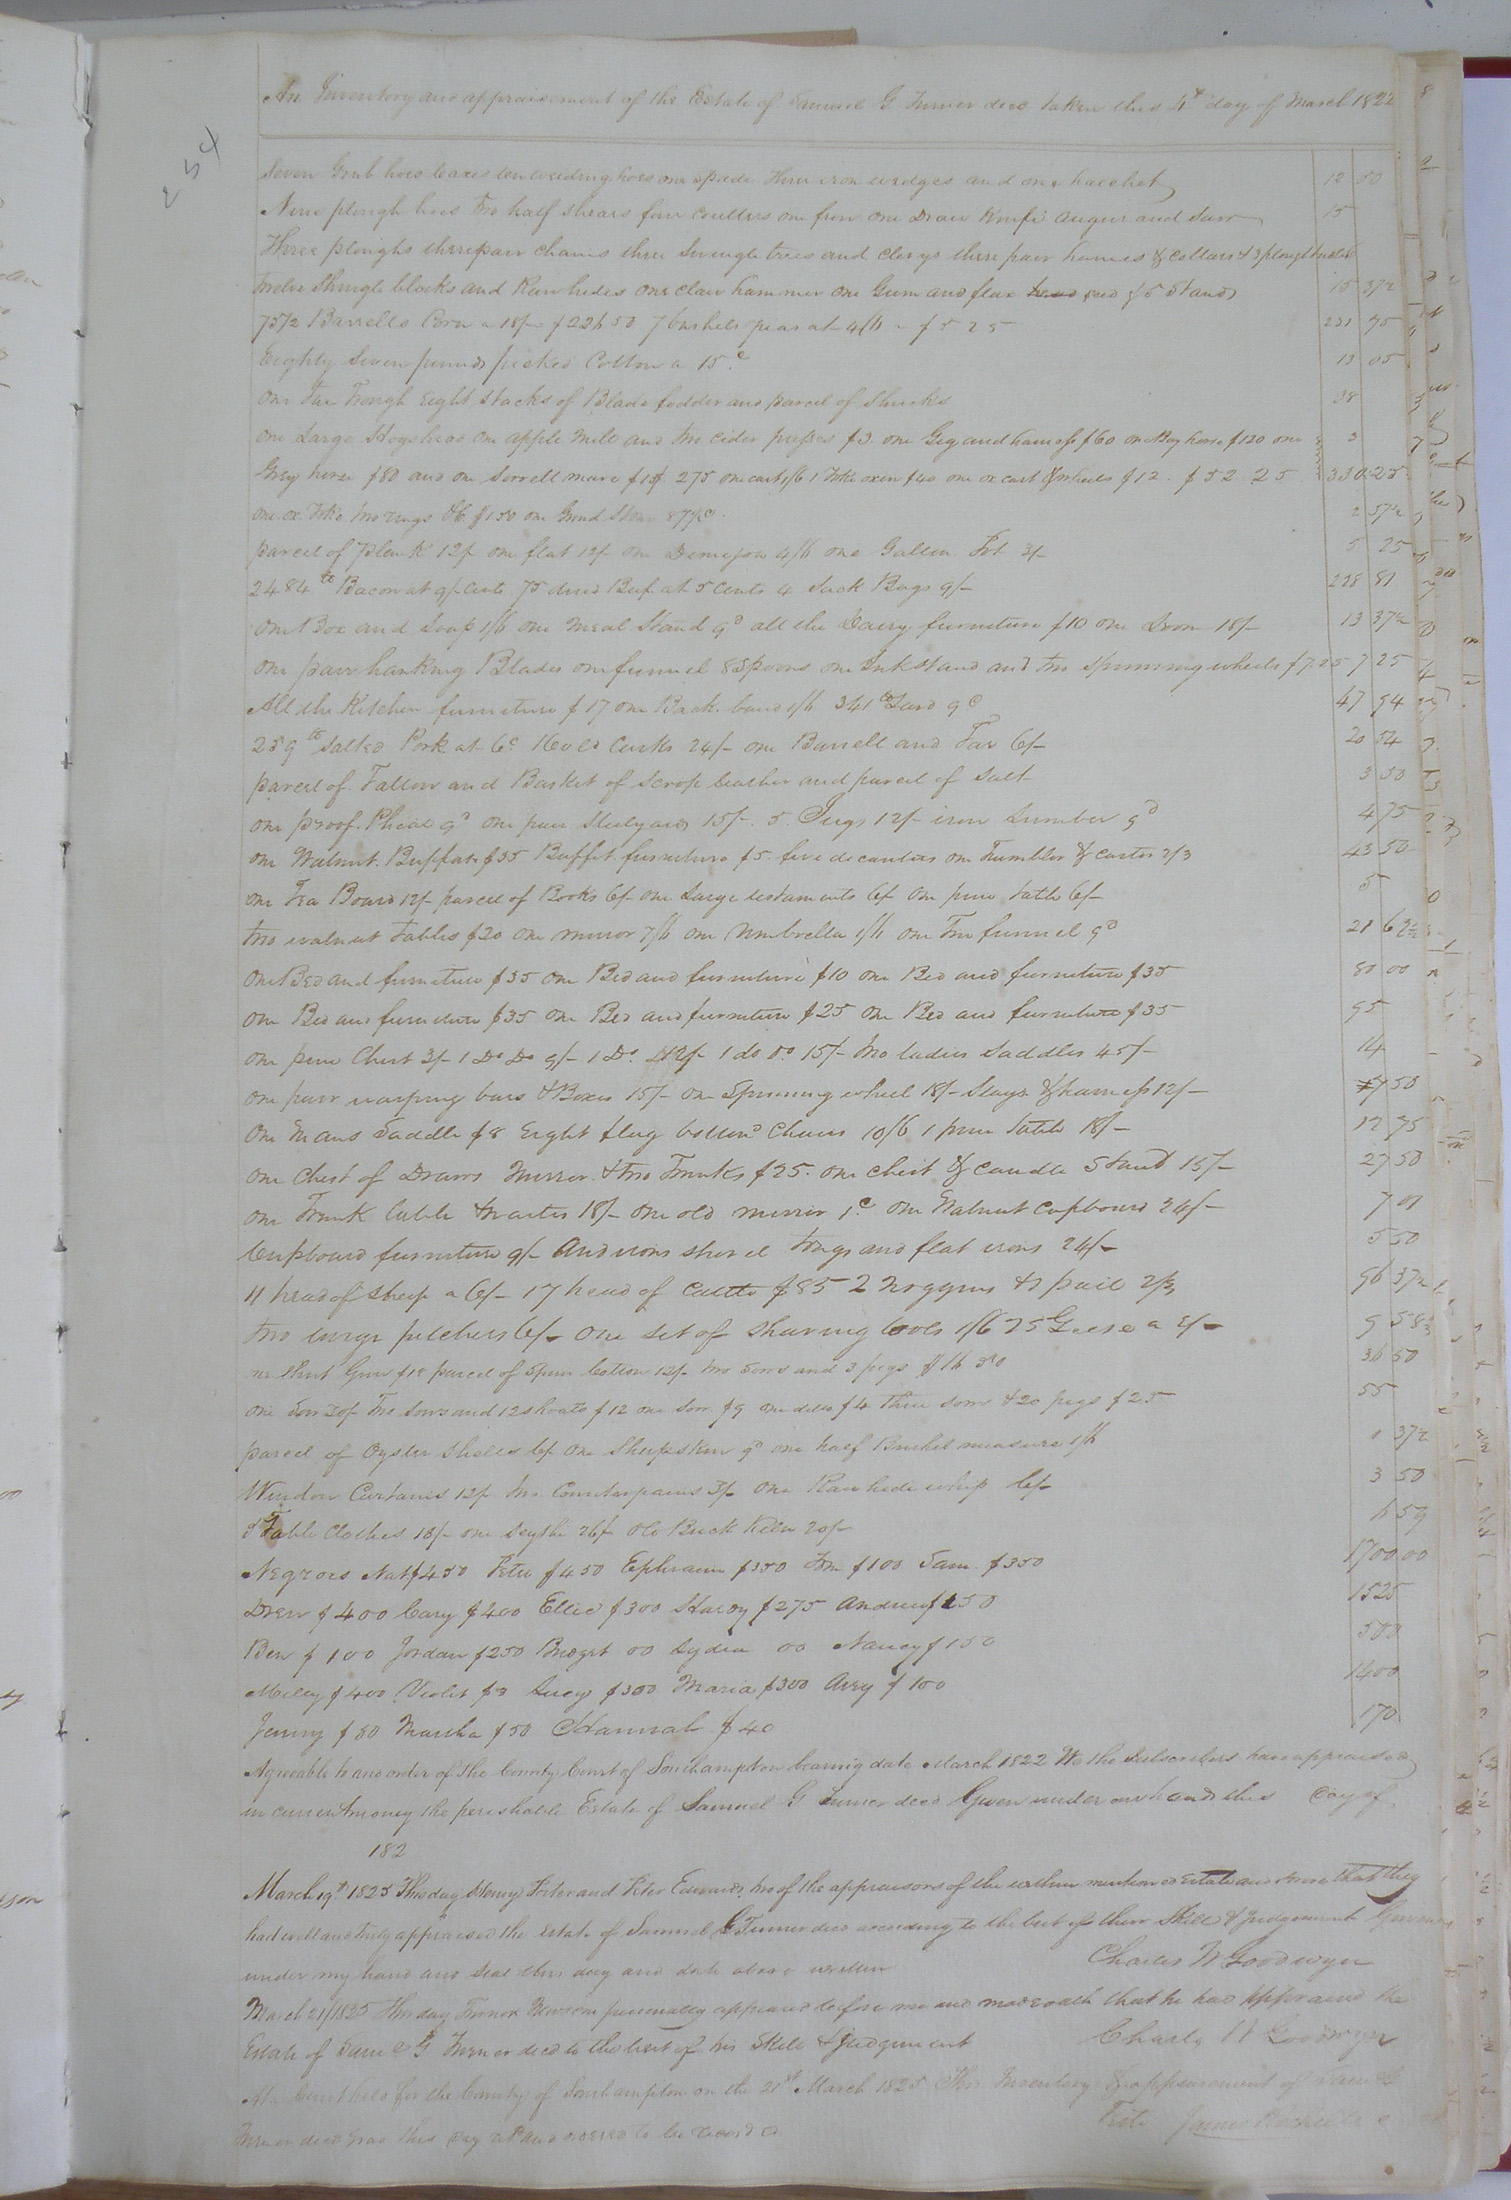 254
An Inventory and appraisement of the Estate of Samuel G Turner decd taken this 4th day of March 1822
Seven Grub hoes axes ten weeding hoes one spade three iron wedges and one hatchet 12 50
Nine plough hoes Two half shears four coulters one frow one Draw Knife auger and Saw 15
Three ploughs three pair chains three Swingle trees and clevys three pair hames & collars & 3 plough
twelve Shingle blocks and Raw hides one claw hammer one Gum and flax seed & 5 Stands 15 37½
75½ Barrells Corn a 18/- $226 50 7 bushels peas at 4/6 - $5 25 231 75
Eighty Seven pounds picked Cotton a 15 c 13 05
one Tar Trough Eight Stacks of Blade fodder and parcel of Shucks 38
one Large Hogshead one apple Mill and two cider presses $3. one Gig and harness $60 one Bay horse $120 one 3
Grey horse $80 and one Sorrell mare $15. 275 one cart 1/6 1 Yoke oxen $40 one ox cart & wheels $12. $52 25 330 25
one ox Yoke two rings Ob $1 50 one Grind Stone 87½ c. 2 37½
parcel of plank 12/- one flat 12/- one Demejon 4/6 one Gallon Pot 3/- 5 25
2484 lb Bacon at 9/- Cents 75 dried Beef at 5 Cents 4 Sack Bags 9/- 228 81
one Box and Soap 1/6 one Meal Stand 9d all the Dairy furniture $10 one Loom 18/- 13 37½
one pair hanking Blades one funnel 8 Spoons one Inkstand and two Spinning wheels $7.25 7 25
All the Kitchen furniture $17 one Back band 1/6 341 lb Lard 9 c 47 94
259 lb Salted Pork at 6c 16 old Casks 24/- one Barrell and Tar 6/- 20 54
parcel of Tallow and Basket of Scrop leather and parcel of Salt 3 50
one proof Phial 9d one pair Steelyards 15/-. 5. Jugs 12/- iron Lumber 9d 4 75
one Walnut Buffat $35 Buffet furniture $5 five decanters one Tumbler & castor 2/3 43 50
one Tea Board 12/- parcel of Books 6/- one Large testaments 6/- one pine table 6/- 5
two walnut Tables $20 one mirror 7/6 one Umbrella 1/6 one Tin funnel 9d 21 62½
one Bed and furniture $35 one Bed and furniture $10 one Bed and furniture $35 80 00
one Bed and furniture $35 one Bed and furniture $25 one Bed and furniture $35 95
one pine Chest 3/- 1 Do Do 9/- 1 Do 12/- 1 do do 15/- two ladies Saddles 45/- 14
one pair warping bars & Boxes 15/- one Spinning wheel 18/- Slays & harness 12/- 7 50
one Mans Saddle $8 Eight flag bottond Chairs 10/6 1 pine table 18/- 12 75
one Chest of Draws Mirror & two Trunks $25. one chest & candle Stand 15/- 27 50
one Trunk table & waiter 18/- one old mirror 1c one Walnut Cupboard 24/- 7 01
Cupboard furniture 9/- Andirons shovel tongs and flat irons 24/- 5 50
11 head of Sheep a 6/- 17 head of cattle $85 2 Noggins & 1 pail 2/3 96 37½
two large pitchers 6/- one Set of Shaving tools 1/6 25 Geese a 2/- 9 58⅓
Shot Gun $18 parcel of Spun Cotton 12/- two Sows and 3 pigs $16 50 36 50
one Sow two Sows and 12 shoats $12 one Sow $9 one ditto $4 three Sows & 20 pigs $25 55
parcel of Oyster Shells 6/- one Sheepskin 9d one half Bushel measure 1/6 1 37½
Window Curtains 12/- two Counterpains 3/- one Raw hide whip 6/- 3 50
3 Table Clothes 18/- one Scythe old Brick Kiln 20/- 6 59
Negroes Nat $450 Peter $450 Ephraim $350 Tom $100 Sam $350 1700 00
Drew $400 Cary $400 Ellic $300 Hardy $275 Andrew $150 1525
Ben $100 Jordan $250 Bridget 00 Lydia 00 Nancy $150 500
Miley $400 Violet $ Lucy $300 Maria $300 Avey $100 1400
Jenny $80 Martha $50 Hannah $40 170
Agreeable to and order of the County Court of Southampton bearing date March 1822 We the Subscribers have appraised
in current money the perishable Estate of Samuel G Turner decd Given under our hands this day of
182
March 19th 1825 This day Henry Porter and Peter Edwards two of the appraisors of the within mentioned Estate and swore that they
had well and truly appraised the Estate of Samuel G Turner decd according to the best of their Skill & Judgement Given
under my hand and Seal this day and date above written Charles W Goodwyn
March 21/1825 this day Turner Newsom personally appeared before me and made oath that he had appraised the
Estate of Saml G Turner decd to the best of his Skill & Judgement Charles W Goodwyn
At a Court held for the County of Southampton on the 21st March 1825 This Inventory & appraisement of Saml G
Turner decd was this day retd and ordered to be recorded Teste James Rochelle c